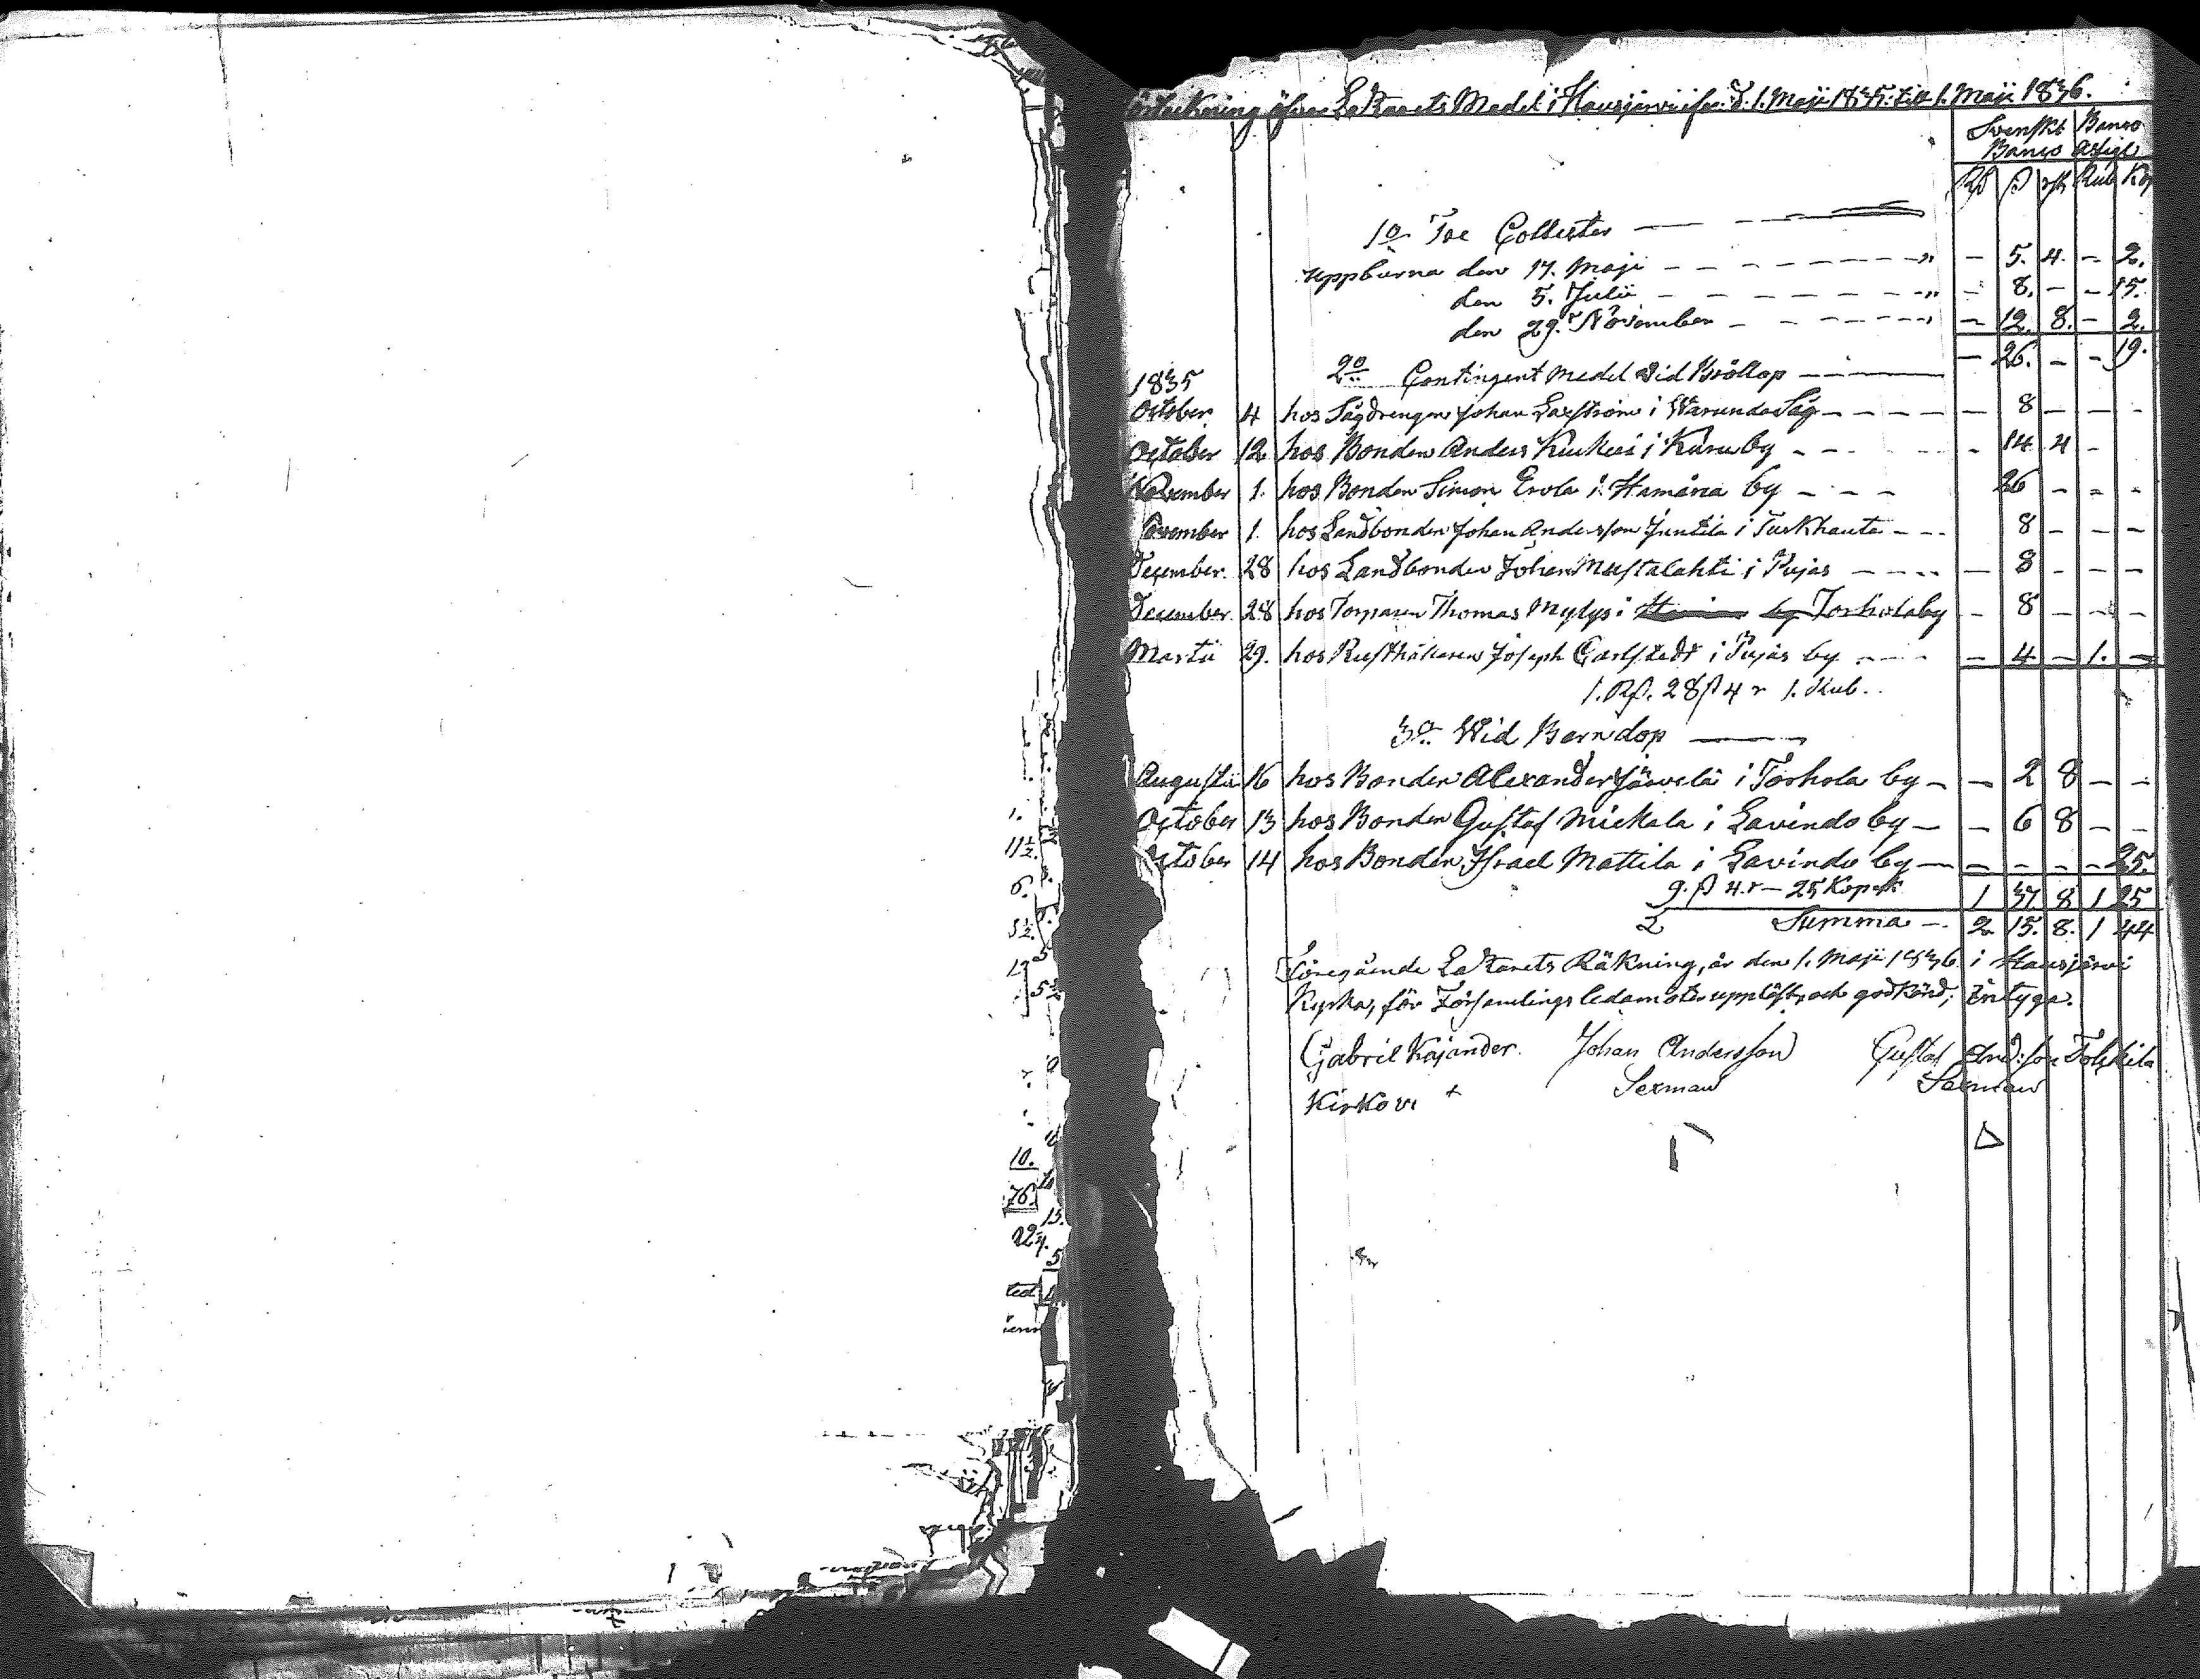 1.
11½.
6.
5½.
10.
76.
15.
22 4.
5
ted
teckning öfver LaZarets Medel i Hausjärvi ifrån d. 1. Maji 1835. till 1. Maji 1836.
Svenskt Banco
Banco Assigt
Rß ß rst Rub Kop
1o Tre Collecter
uppburna den 17. Maji - 5. 4. - 2.
den 5. Julii - 8. - - 15.
den 29. November - 12. 8. - 2.
- 26. - - 19.
1835 2o Contingent Medel Vid Bröllop
October 4 hos Sågdrengen Johan Laxström i Warunda Såg - 8 - - -
October 12 hos Bonden Anders i Kuru by - 14 4 -
November 1. hos Bonden Simon Erola i by - 26 - - -
ovember 1. hos Landbonden Johan Andersson Juntila i Turkhauta - 8 - - -
December 28 hos Landbonden Johan Mustalahti i Pujas - 8 - - -
December 28 hos Torparen Thomas Myllys i Torholaby - 8 - - -
Martii 29. hos Rusthållaren Joseph Carlstedt i Pujas by - 4 - 1. -
1. Rß. 28 ß 4 r 1. Rub.
3o Wid Barndop
Augusti 16 hos Bonden Alexander Järvelä i Torhola by - 2 8 - -
October 13 hos Bonden Gustaf Mickala i Lavindo by - 6 8 - -
October 14 hos Bonden Israel Mattila i Lavindo by - - - - 25.
9. ß 4. r - 25 Kopek 1 37 8 1 25
2 Summa - 2. 15. 8. 1 44
Föregående LaZarets Räkning, är den 1. Maji 1836 i Hausjärvi
Kyrka, för Församlings ledamoter uppläst, och godkänd; intyga.
Gabriel Kajander. Johan Andersson Gustaf And:son Tolkkila
Kirkov + Sexman Sexman